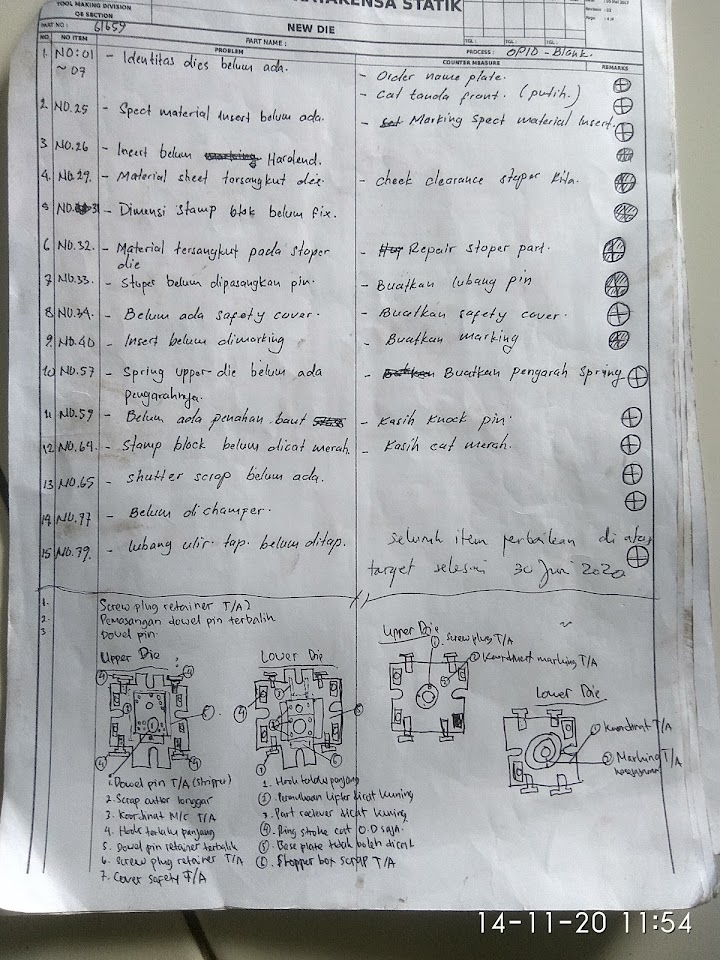 TOOL MAKING DIVISION
QE SECTION
STATIK
Revision : 03
Page :
PART NO : 61659
NEW DIE
PART NAME :
PROCESS : OP10 - Blank.
TGL :
TGL :
NO
NO ITEM
PROBLEM
COUNTER MEASURE
REMARKS
1. NO:01 ~ 07 - Identitas dies belum ada.
- Order name plate.
- Cat tanda front. (putih.)
2. NO.25 - Spect material Insert belum ada.
- Marking Spect material Insert.
3 NO.26 - Insert belum Hardend.
4. NO.29. - Material sheet tersangkut die.
- check clearance stoper kita.
5 NO. 31 - Dimensi stamp blok belum fix.
6 NO.32. - Material tersangkut pada stoper die
- Repair stoper part.
7 NO.33. - Stoper belum dipasangkan pin.
- Buatkan lubang pin
8 NO.34. - Belum ada safety cover.
- Buatkan safety cover.
9. NO.40 - Insert belum dimarking
- Buatkan marking
10 NO.57 - Spring upper die belum ada pengarahnya.
- Buatkan pengarah spring
11 NO.59 - Belum ada penahan baut
- Kasih knock pin.
12 NO.64. - Stamp block belum dicat merah.
- Kasih cat merah.
13 NO.65 - shutter scrap belum ada.
14 NO.77 - Belum dichamfer.
15 NO.79. - lubang ulir tap. belum ditap.
seluruh item perbaikan di atas
target selesai 30 Juni 2020
1. Screw plug retainer T/A
2. Pemasangan dowel pin terbalik
3 Dowel pin
Upper Die
Lower Die
Upper Die
① Screw plug T/A
② Koordinat marking T/A
Lower Die
① Koordinat T/A
② Marking T/A
1. Dowel pin T/A (stripper)
2. Scrap cutter longgar
3. Koordinat M/C T/A
4. Hook terlalu panjang
5. Dowel pin retainer terbalik
6. Screw plug retainer T/A
7. Cover safety T/A
1. Hook terlalu panjang
② Permukaan lifter dicat kuning
3. Part reciever dicat kuning
④ Ring stroke cost O.D saja.
⑤ Base plate tidak boleh dicat
⑥ Stopper box scrap T/A
14-11-20 11:54